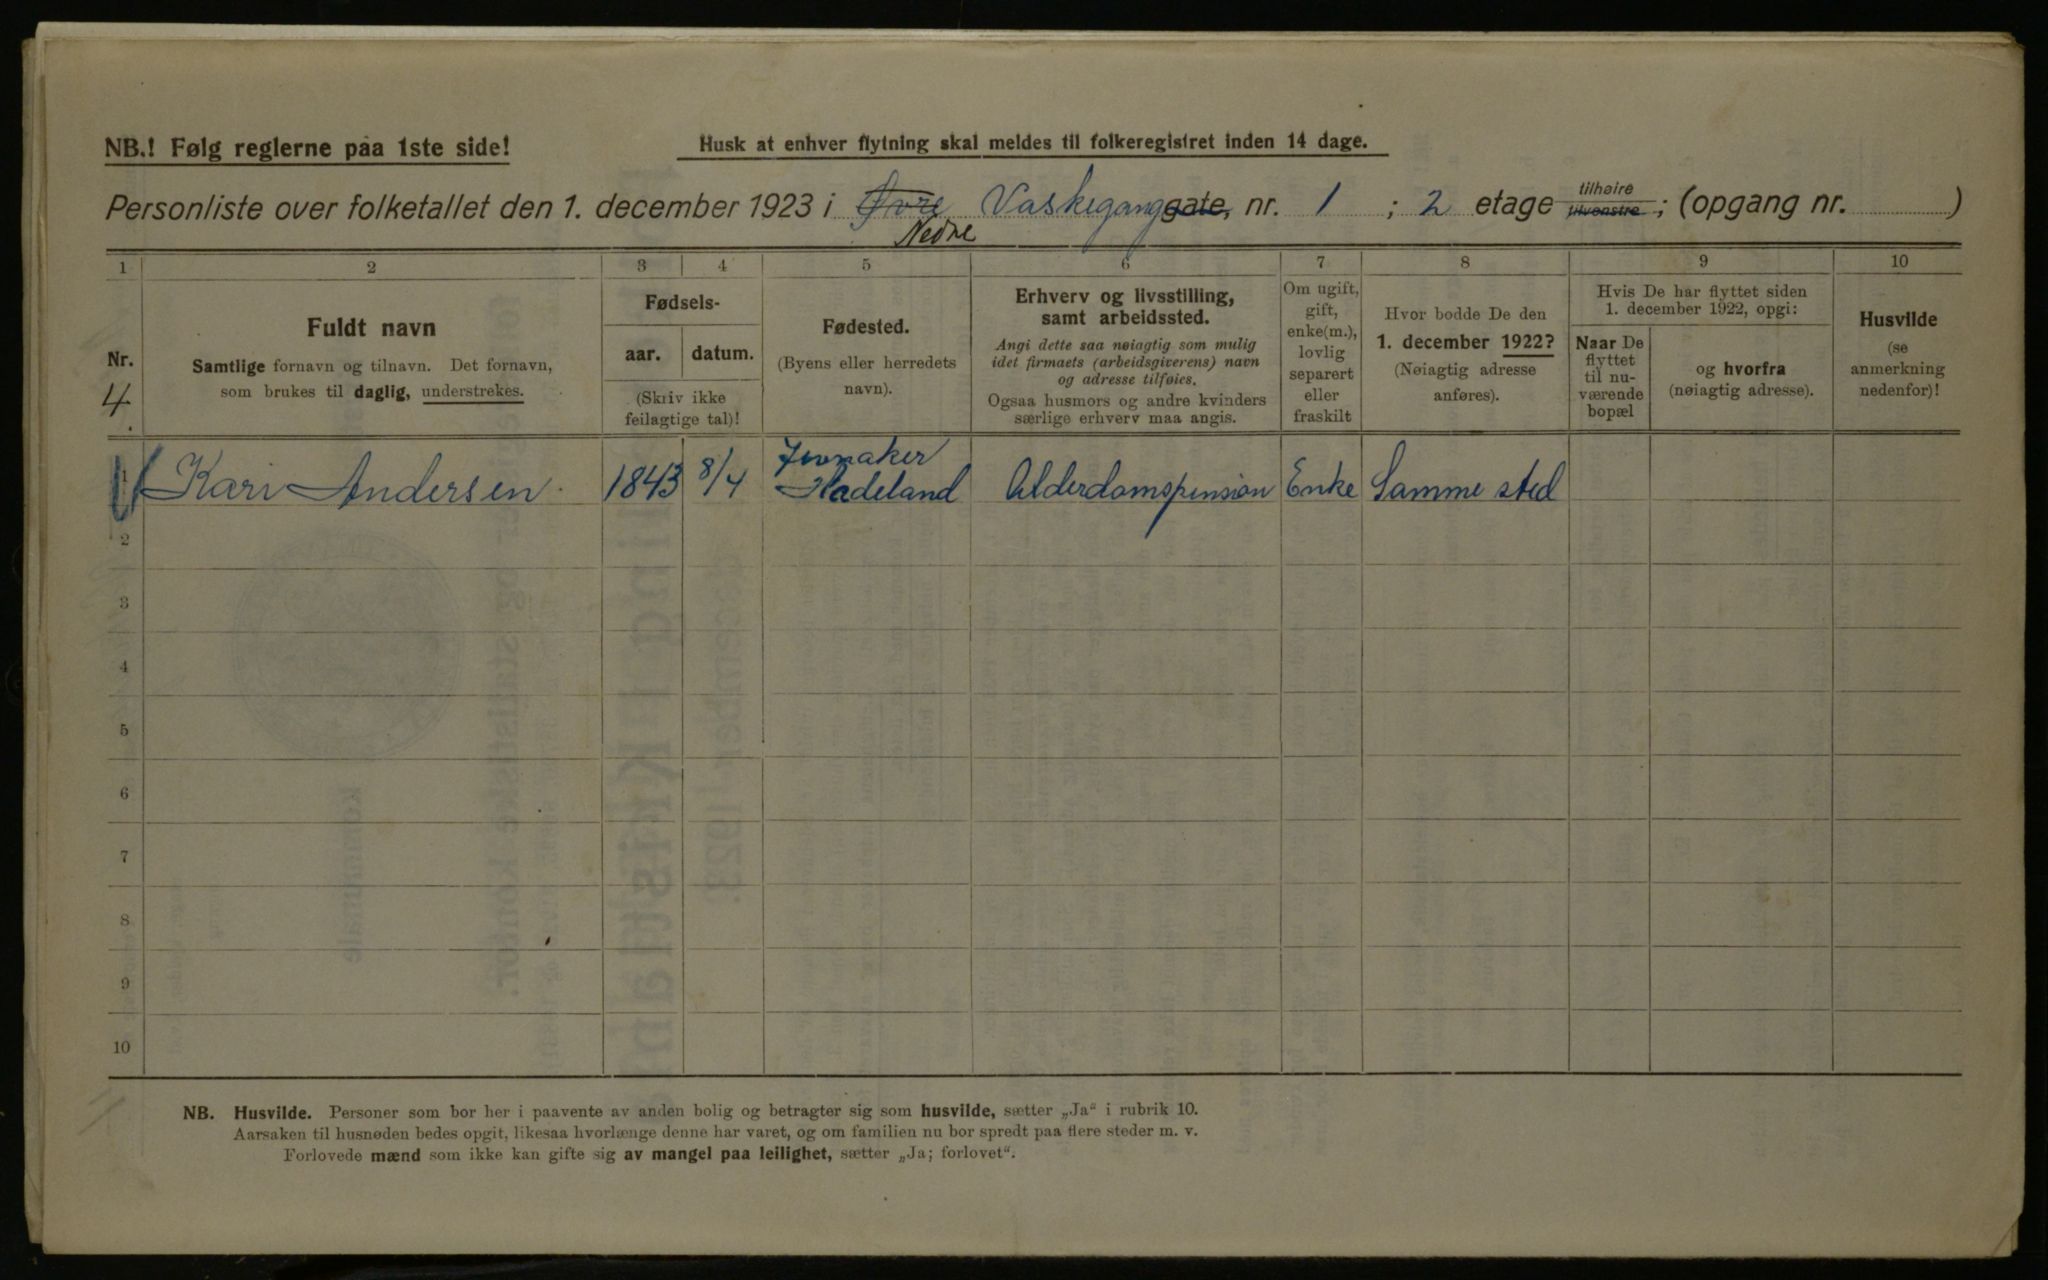 NB.! Følg reglerne paa 1ste side!
Husk at enhver flytning skal meldes til folkeregistret inden 14 dage.
Personliste over folketallet den 1. december 1923 i Øvre Vaskegang gate, nr. 1 ; 2 etage tilhøire tilvenstre ; (opgang nr. )
Nedre
1 2 3 4 5 6 7 8 9 10
Nr.
4.
Fuldt navn
Samtlige fornavn og tilnavn. Det fornavn,
som brukes til daglig, understrekes.
Fødsels-
aar. datum.
(Skriv ikke
feilagtige tal)!
Fødested.
(Byens eller herredets
navn).
Erhverv og livsstilling,
samt arbeidssted.
Angi dette saa nøiagtig som mulig
idet firmaets (arbeidsgiverens) navn
og adresse tilføies.
Ogsaa husmors og andre kvinders
særlige erhverv maa angis.
Om ugift,
gift,
enke(m.),
lovlig
separert
eller
fraskilt
Hvor bodde De den
1. december 1922?
(Nøiagtig adresse
anføres).
Hvis De har flyttet siden
1. december 1922, opgi:
Naar De
flyttet
til nu-
værende
bopæl
og hvorfra
(nøiagtig adresse).
Husvilde
(se
anmerkning
nedenfor)!
Jevnaker
1 Kari Andersen 1843 8/4 Hadeland Alderdomspension Enke Samme sted
2
3
4
5
6
7
8
9
10
NB. Husvilde. Personer som bor her i paavente av anden bolig og betragter sig som husvilde, sætter „Ja“ i rubrik 10.
Aarsaken til husnøden bedes opgit, likesaa hvorlænge denne har varet, og om familien nu bor spredt paa flere steder m. v.
Forlovede mænd som ikke kan gifte sig av mangel paa leilighet, sætter „Ja; forlovet“.